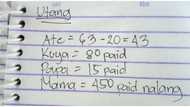 Utang
Ate = 63 - 20 = 43
Kuya = 80 paid
Papa = 15 paid
Mama = 450 paid nalang